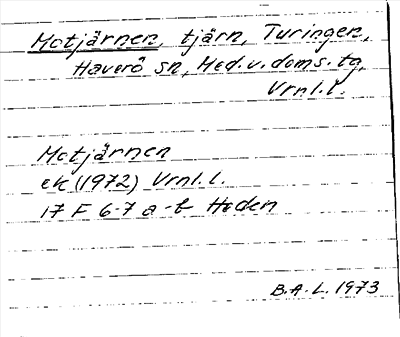 Motjärnen, tjärn, Turingen,
Haverö sn, Med.v.doms.tg,
Vrnl.l.
Motjärnen
ek (1972) Vrnl.l.
17 F 6-7 a-b Hoden
B.A.L. 1973